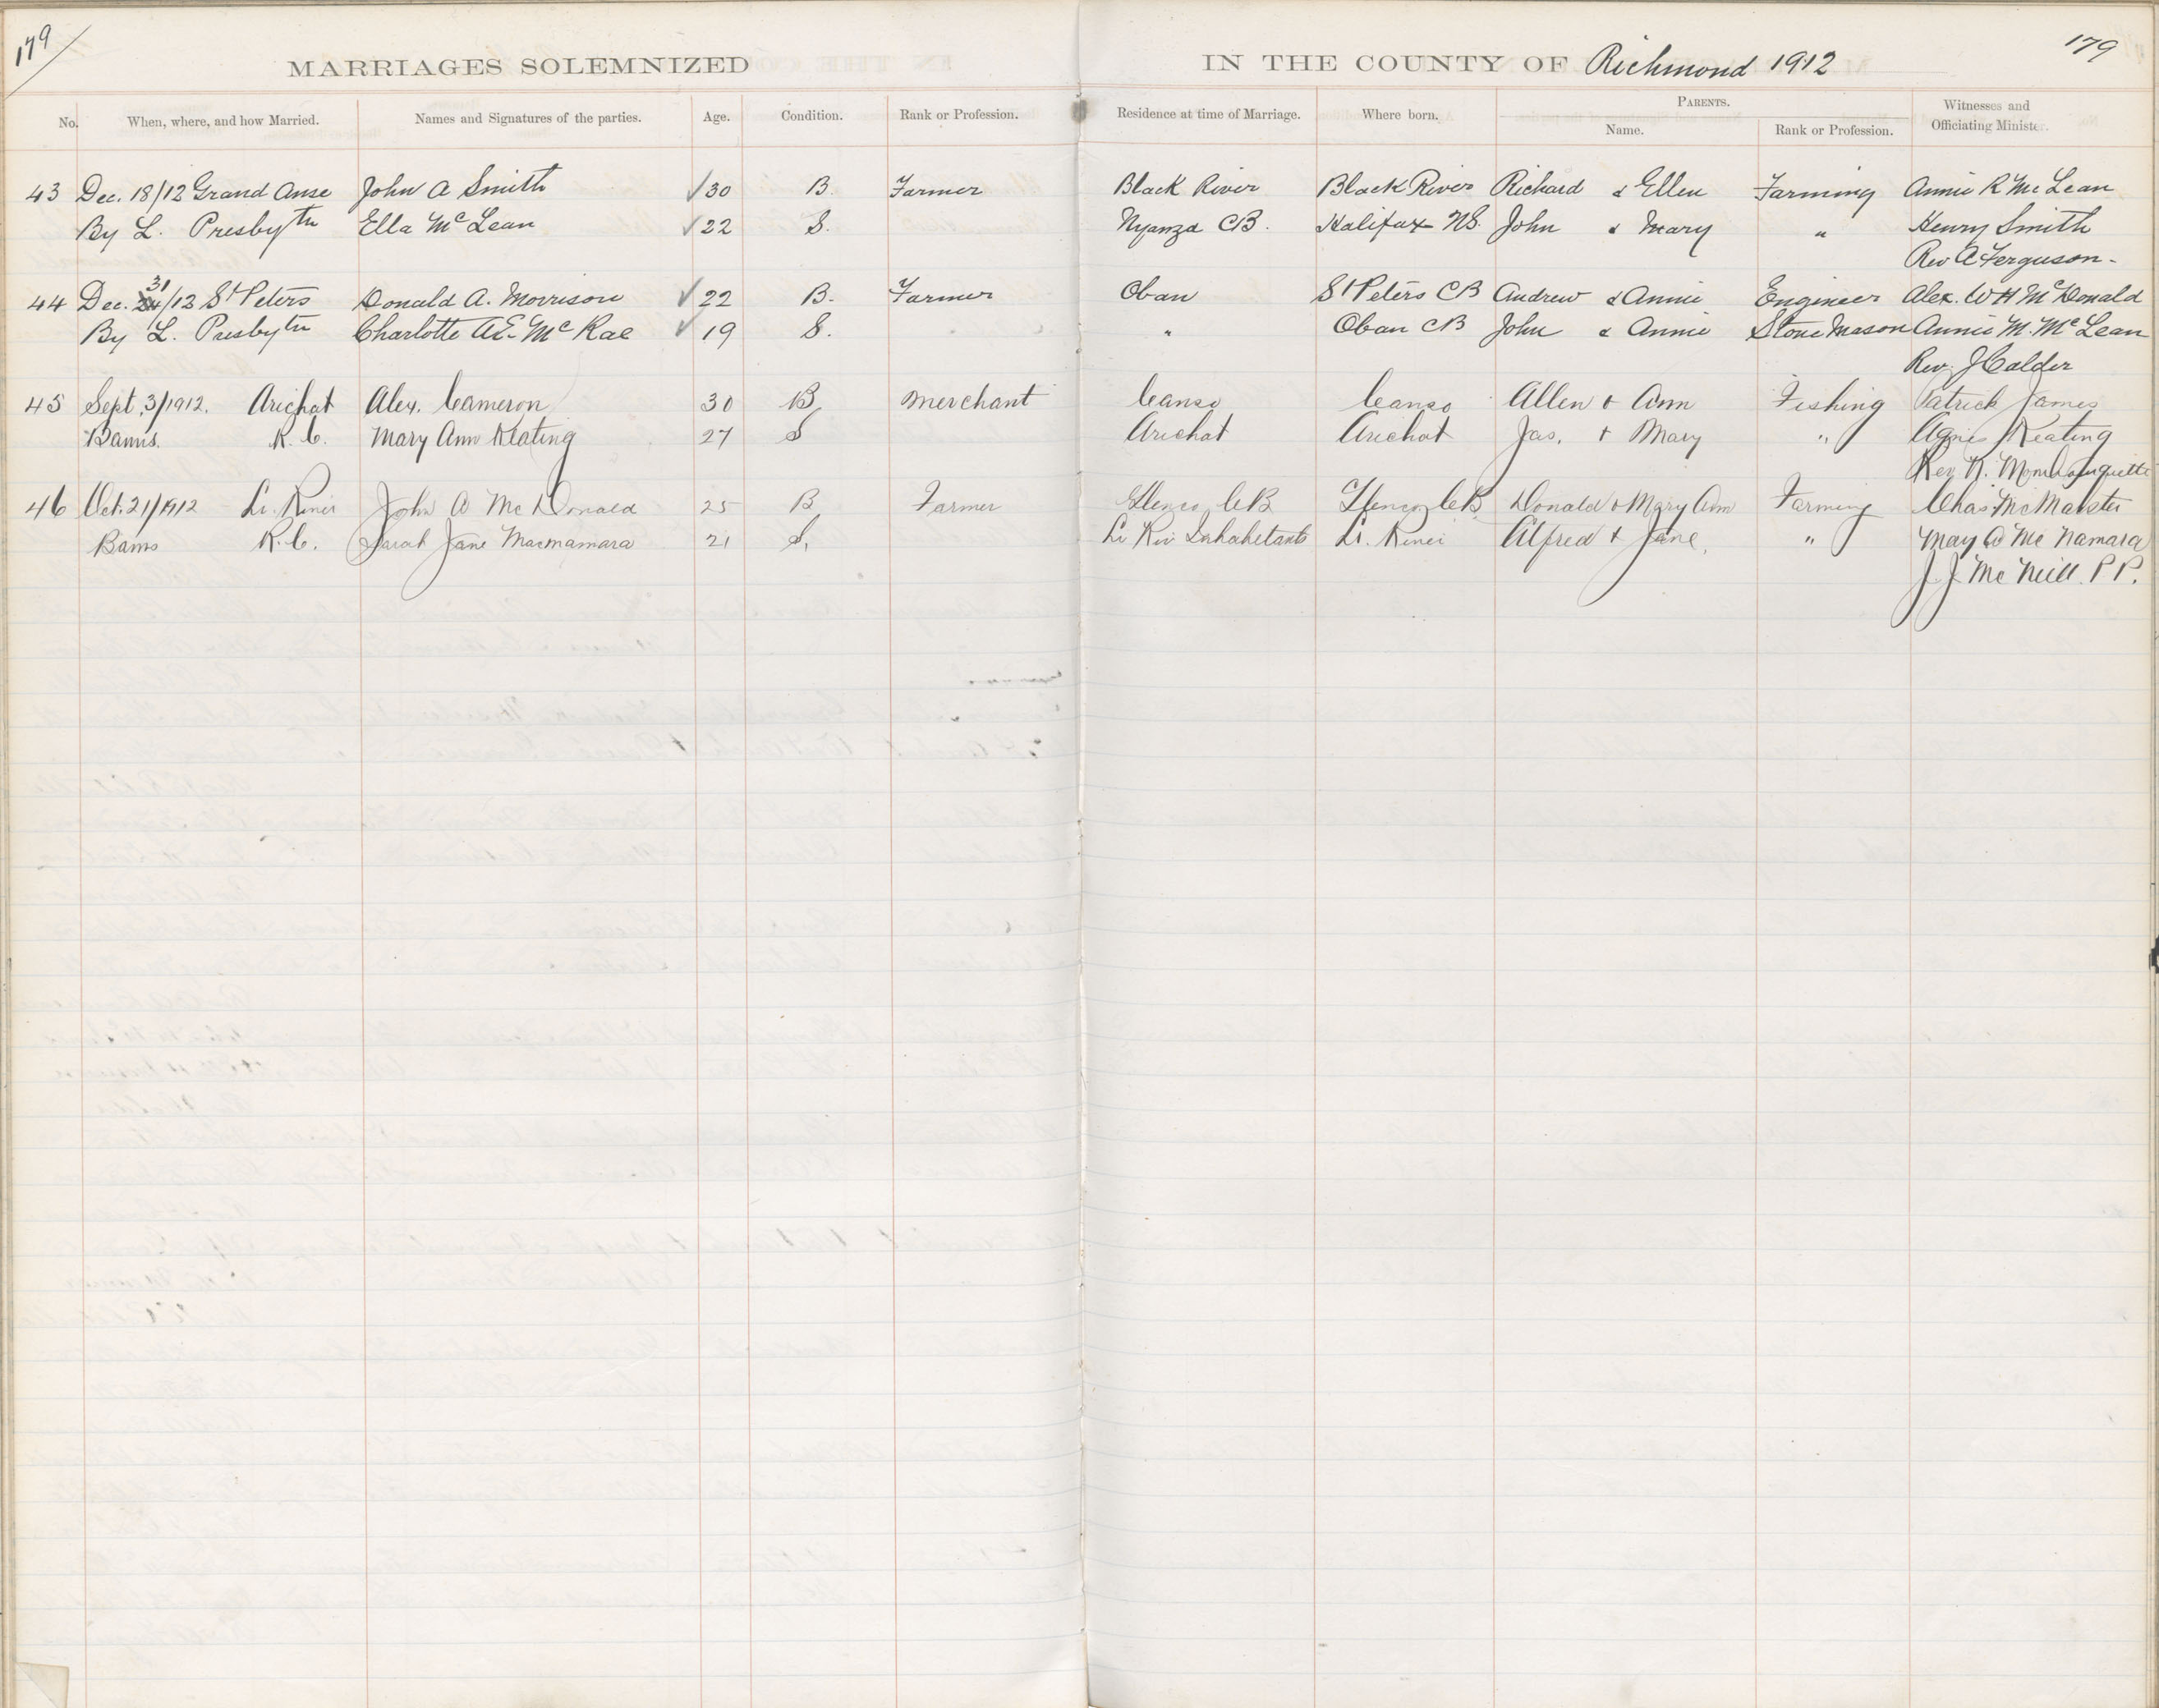 179 179
MARRIAGES SOLEMNIZED IN THE COUNTY OF Richmond 1912
No. When, where, and how Married. Names and Signatures of the parties. Age. Condition. Rank or Profession. Residence at time of Marriage. Where born. PARENTS. Name. Rank or Profession. Witnesses and Officiating Minister.
43 Dec. 18/12 Grand Anse John A Smith ✓30 B. Farmer Black River Black River Richard & Ellen Farming Annie R McLean
By L. Presbytn Ella McLean ✓22 S. Nyanza CB. Halifax NS. John & Mary " Henry Smith
Rev A Ferguson
31
44 Dec. 24/12 St Peters Donald A. Morrison ✓22 B. Farmer Oban St Peters CB Andrew & Annie Engineer Alex. W H McDonald
By L. Presbytn Charlotte A E McRae ✓19 S. " Oban CB John & Annie Stone Mason Annie M. McLean
Rev. J Calder
45 Sept. 3/1912. Arichat Alex. Cameron 30 B Merchant Canso Canso Allen + Ann Fishing Patrick James
Banns. R.C. Mary Ann Keating 27 S Arichat Arichat Jas. + Mary " Agnes Keating
Rev.
46 Oct. 21/1912 John A McDonald 25 B Farmer Glenco CB Glenco CB Donald + Mary Ann Farming Chas McMaster
Banns R.C. Sarah Jane Macnamara 21 S. Alfred + Jane. " May A McNamara
J J McNeill P P.